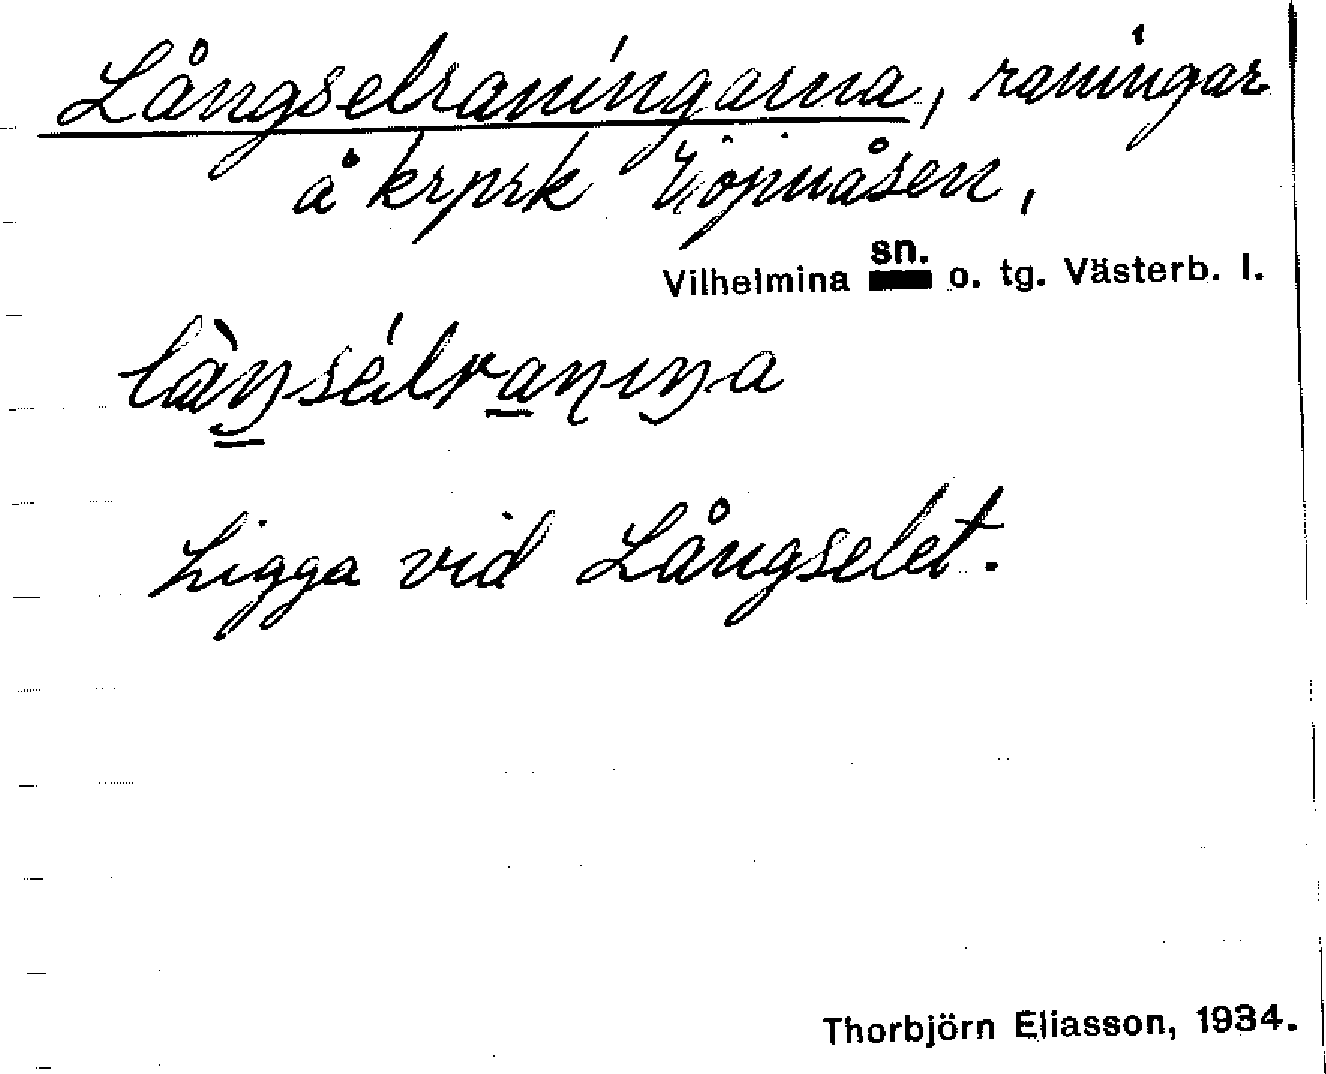 Långselraningarna, raningar
å krprk Vojmåsen,
Vilhelmina sn. o. tg. Västerb. l.
låŋsélranıŋa
Ligga vid Långselet.
Thorbjörn Eliasson, 1934.